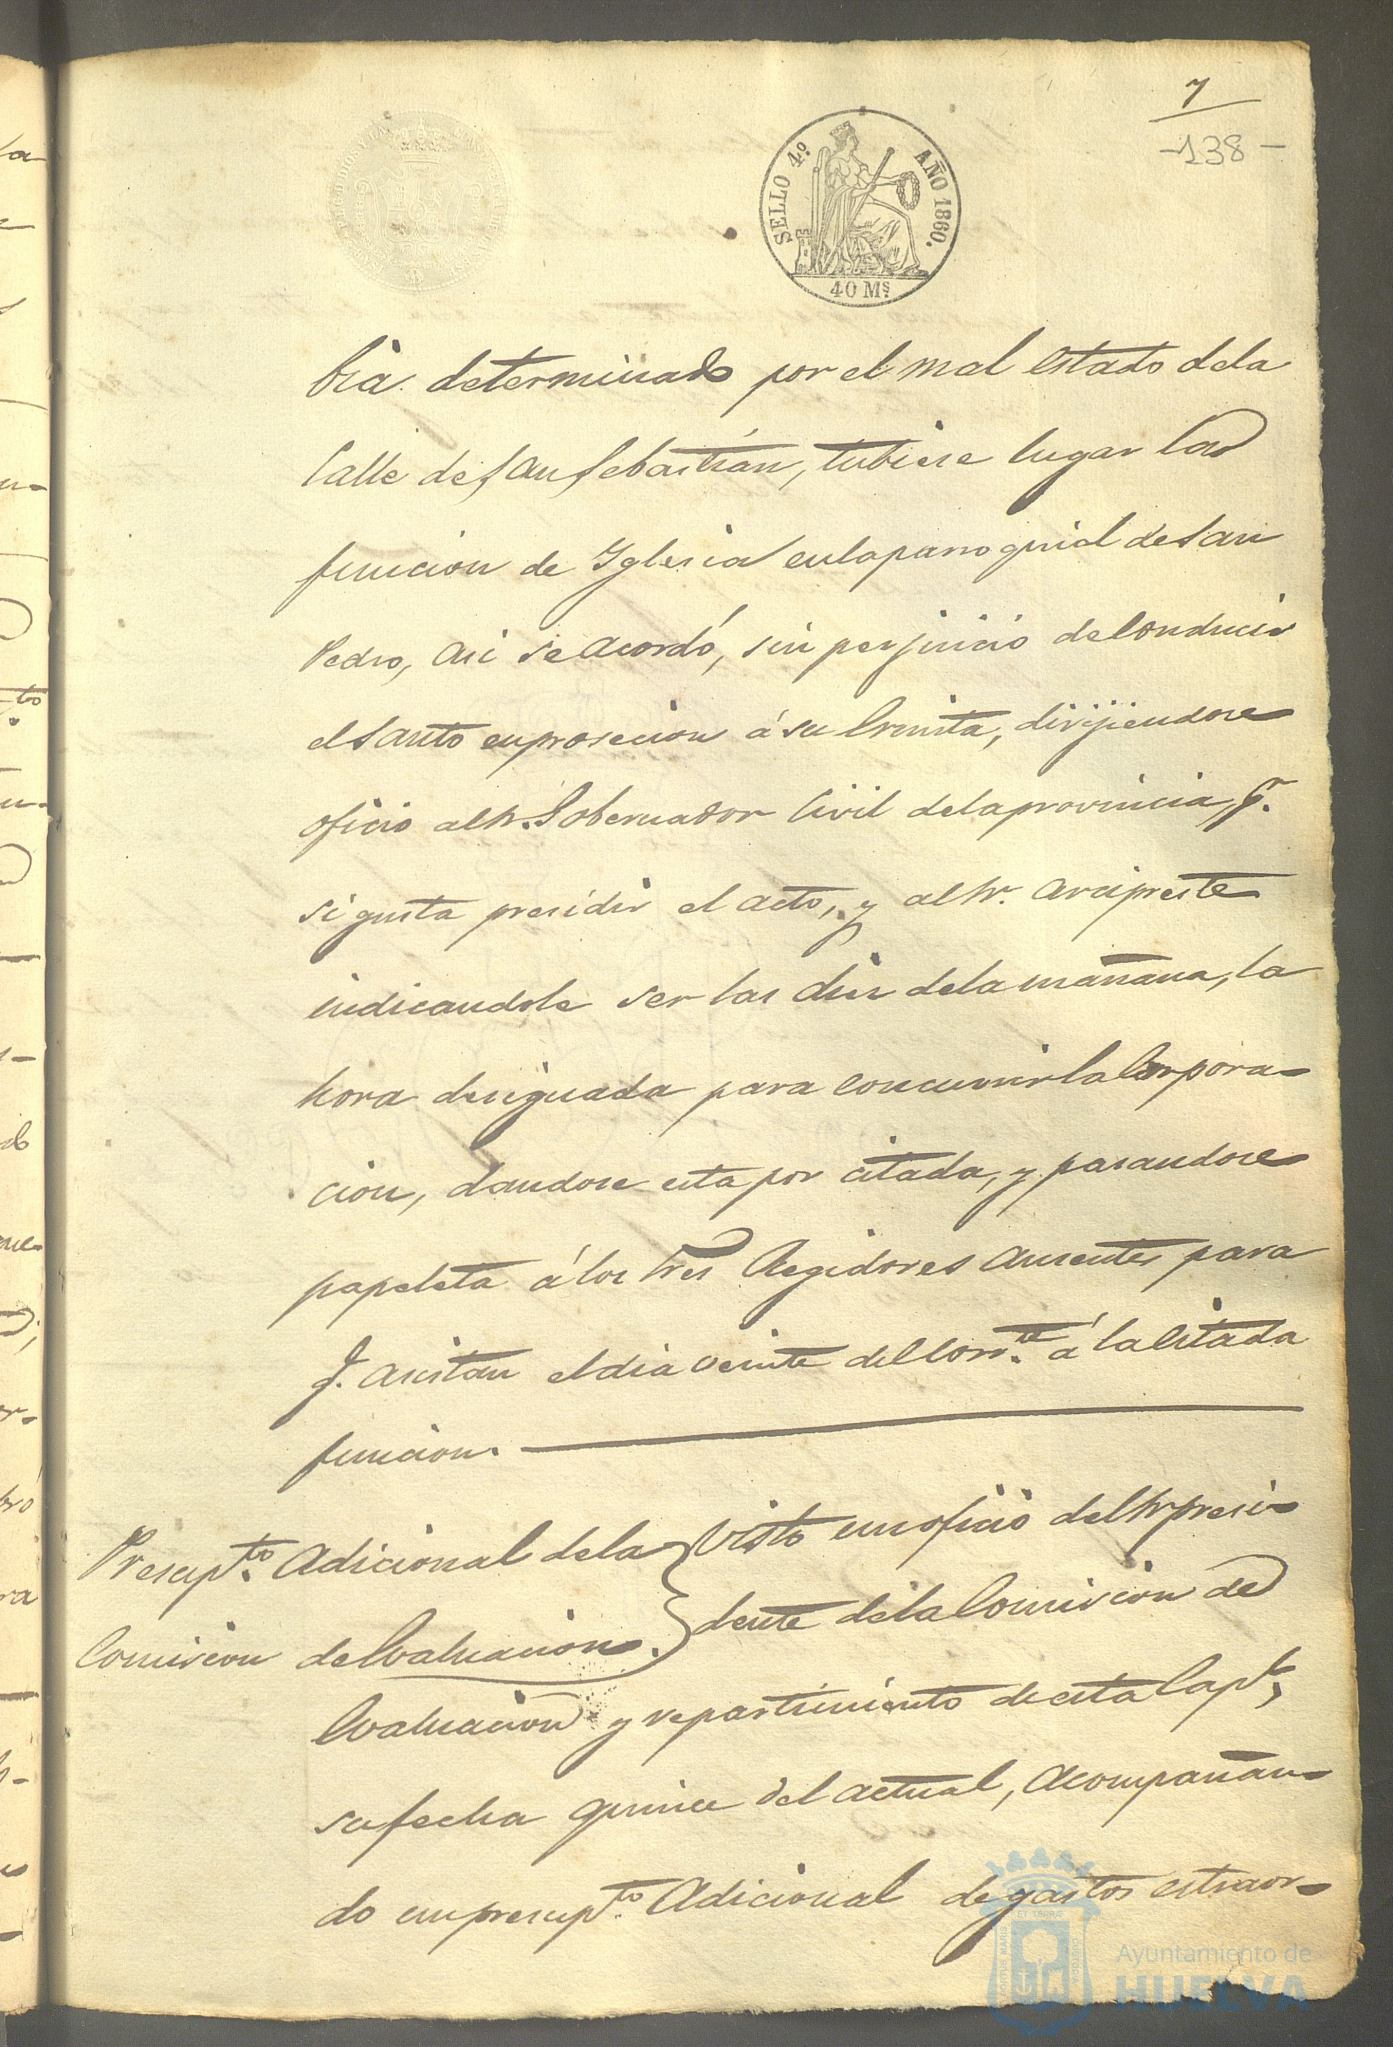 7
-138-
SELLO 4.º AÑO 1860.
40 Ms.
bia determinado por el mal estado dela
Calle de San Sebastián, tubiese lugar la
funcion de Yglesia enla parroquial de San
Pedro, asi se acordó, sin perjuicio de conducir
el Santo en prosecion á su Ermita, dirijiendose
oficio al Sr. Gobernador Civil dela provincia, pr.
si gusta presidir el acto, y al Sr. Arcipreste
indicandole ser las diez dela mañana, la
hora designada para concurrir la Corpora-
cion, dandose esta por citada, y pasandose
papeleta á los tres Regidores ausentes para
q. asistan el dia veinte del corrte. á la citada
funcion.
Presupto. Adicional dela
Comision de Evaluacion.
Visto un oficio del Sr. presi-
dente dela Comision de
Evaluacion y repartimiento de esta Capl.,
su fecha quince del actual, acompañan-
do un presupto. Adicional de gastos estraor-
Ayuntamiento de
HUELVA